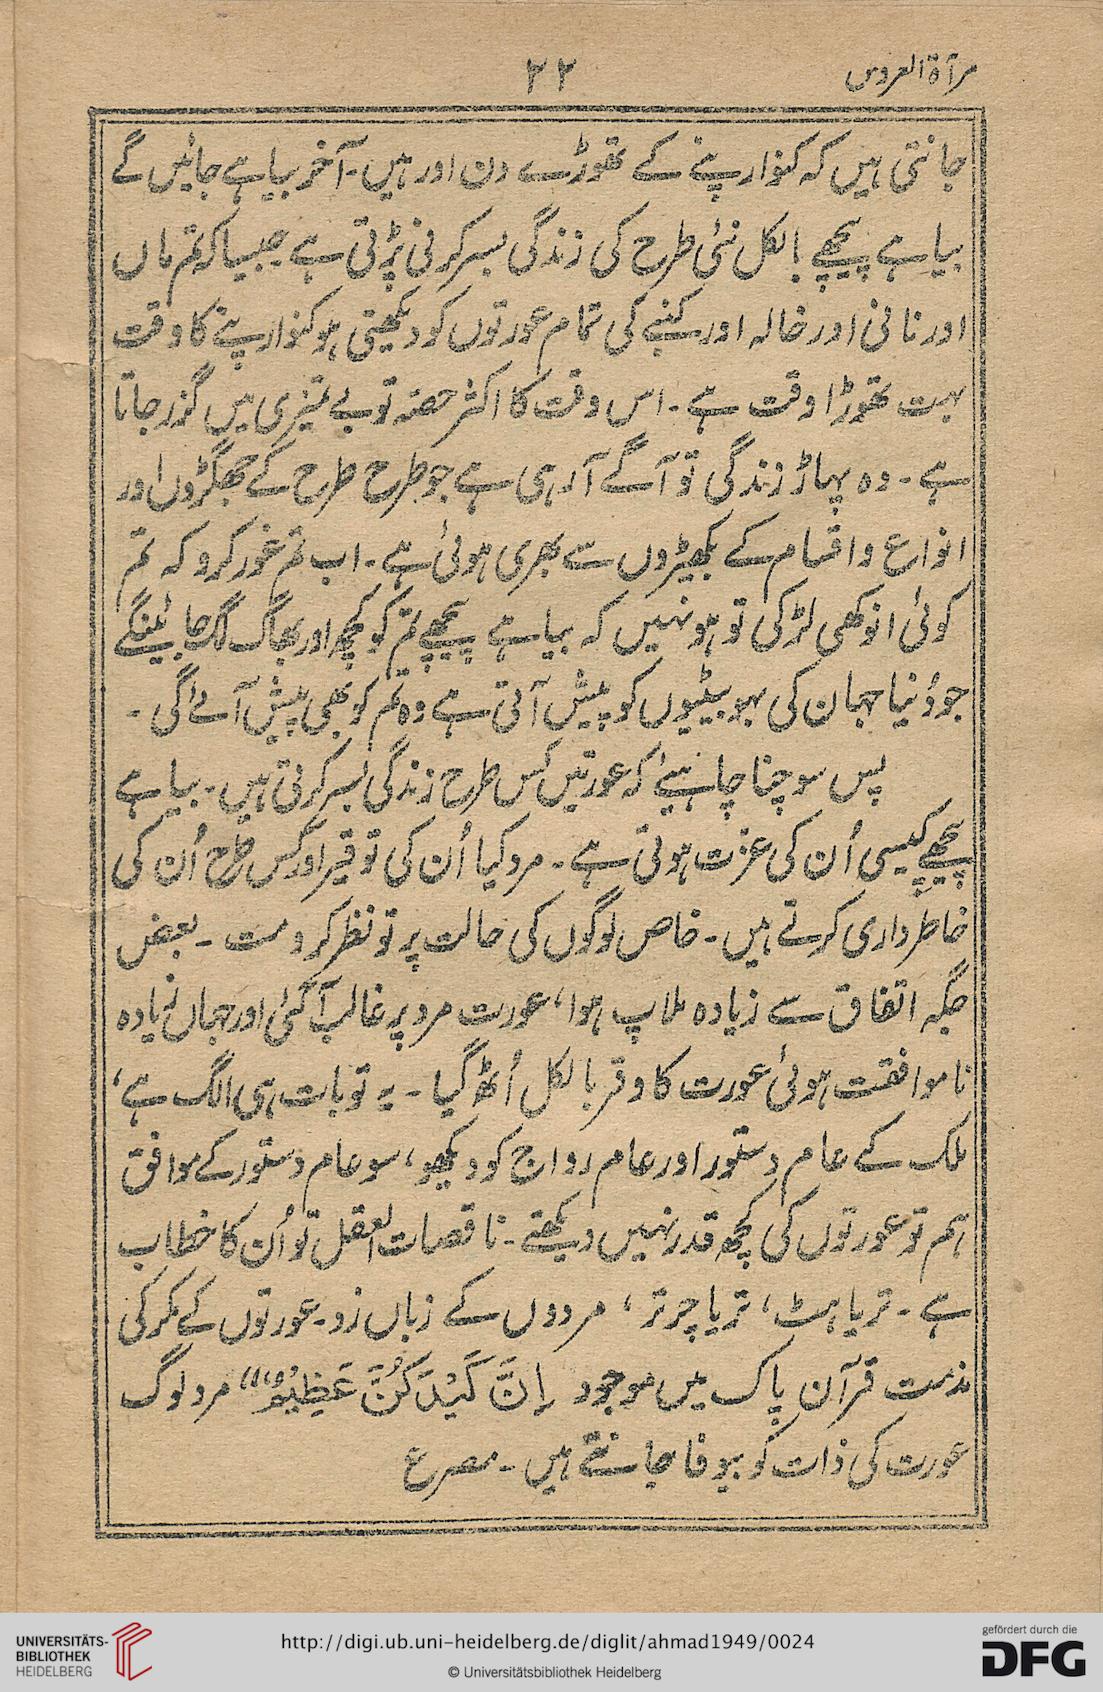 مرآۃ العروس
۲۲
جانتی ہیں کہ کنوارپنے کے تھوڑے دن اور ہیں۔ آخر بیاہے جائیں گے
بیاہے پیچھے بالکل نئی طرح کی زندگی بسر کرنی پڑتی ہے جیسا کہ تم ماں
اور نانی اور خالہ اور کنبے کی تمام عورتوں کو دیکھتی ہو کنوارپنے کا وقت
بہت تھوڑا وقت ہے۔ اس وقت کا اکثر حصہ تو بے تمیزی میں گزر جاتا
ہے۔ وہ پہاڑ زندگی تو آگے آ رہی ہے جو طرح طرح کے جھگڑوں اور
انواع و اقسام کے بکھیڑوں سے بھری ہوئی ہے۔ اب تم غور کرو کہ تم
کوئی انوکھی لڑکی تو ہو نہیں کہ بیاہے پیچھے تم کو کچھ اور بھاگ لگ جائینگے
جو دُنیا جہان کی بہو بیٹیوں کو پیش آتی ہے وہ تم کو بھی پیش آئے گی۔
پس سوچنا چاہئیے کہ عورتیں کس طرح زندگی بسر کرتی ہیں۔ بیاہے
پیچھے کیسی اُن کی عزت ہوتی ہے۔ مرد کیا اُن کی توقیر اور کس طرح اُن کی
خاطر داری کرتے ہیں۔ خاص لوگوں کی حالت پر تو نظر کرو مت۔ بعض
جگہ اتفاق سے زیادہ ملاپ ہوا، عورت مرد پر غالب آ گئی اور جہاں زیادہ
ناموافقت ہوئی عورت کا وقر بالکل اُٹھ گیا۔ یہ تو بات ہی الگ ہے،
ملک کے عام دستور اور عام رواج کو دیکھو، سو عام دستور کے موافق
ہم تو عورتوں کی کچھ قدر نہیں دیکھتے۔ ناقصات العقل تو اُن کا خطاب
ہے۔ تریا ہٹ، تریا چرتر، مردوں کے زباں زد۔ عورتوں کے مکر کی
مذمت قرآن پاک میں موجود اِنَّ کَیْدَکُنَّ عَظِیْمٌ“ مرد لوگ
عورت کی ذات کو بیوفا جانتے ہیں۔ مصرع
UNIVERSITÄTS-
BIBLIOTHEK
HEIDELBERG
http://digi.ub.uni-heidelberg.de/diglit/ahmad1949/0024
© Universitätsbibliothek Heidelberg
gefördert durch die
DFG